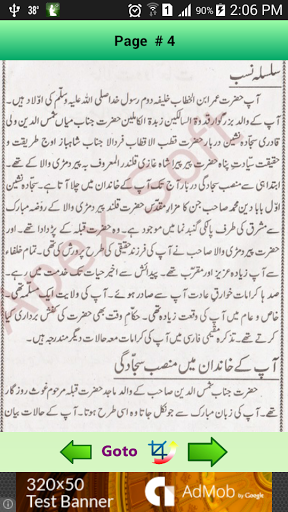 38°
90%
2:06 PM
Page # 4
سلسلہ نسب
آپ حضرت عمر ابن الخطاب خلیفہ دوم رسول خدا صلی اللہ علیہ وسلم کی اولاد ہیں۔
آپ کے والد بزرگوار قدوۃ السالکین زبدۃ الکاملین حضرت جناب میاں شمس الدین ولی
قادری سجادہ نشین دربار حضرت قطب الاقطاب فرد الا جناب شاہباز اوج طریقت و
حقیقت سیادت پناہ حضرت پیر پیرا شاہ غازی قلندر المعروف بہ پیر دمڑی والا کے تھے۔
ابتدا ہی سے منصب سجادگی دربار آج تک آپ کے خاندان میں چلا آتا ہے۔ سجادہ نشین
اول بابا دین محمد صاحب جن کا مزار مقدس حضرت قلندر پیر دمڑی والا کے روضہ مبارک
سے مشرق کی طرف بانگی گنبد نما میں موجود ہے۔ حضرت قبلہ کے پڑدادا تھے۔ اور
حضرت پیر دمڑی والا صاحب نے آپ کی مثل فرزند حقیقی کی طرح پرورش کی تھی۔ تمام خلفاء
سے آپ کے زیادہ عزیز اور مقرب تھے۔ پیدائش سے اخیر حیات تک خدمت میں رہے۔
صدہا کرامات خوارق عادت آپ سے صادر ہوئے۔ آپ کی ولایت ایک آیت تھی۔
خاص و عام میں آپ کی وقعت زیادہ تھی۔ حکام وقت بھی حضرت کی کفش برداری کیا
کرتے تھے۔ تذکرہ مقیمی فارسی میں آپ کی کرامات معہ حالات دیگر مندرجہ ہیں۔
آپ کے خاندان میں منصب سجادگی
حضرت جناب شمس الدین صاحب کے والد ماجد حضرت قبلہ مرحوم غوث روزگار
تھے۔ آپ کی زبان مبارک سے جو نکل جاتا وہ اسی طرح ہوتا۔ آپ کے حالات بیان
Apex Soft
Goto
320x50
Test Banner
AdMob by Google